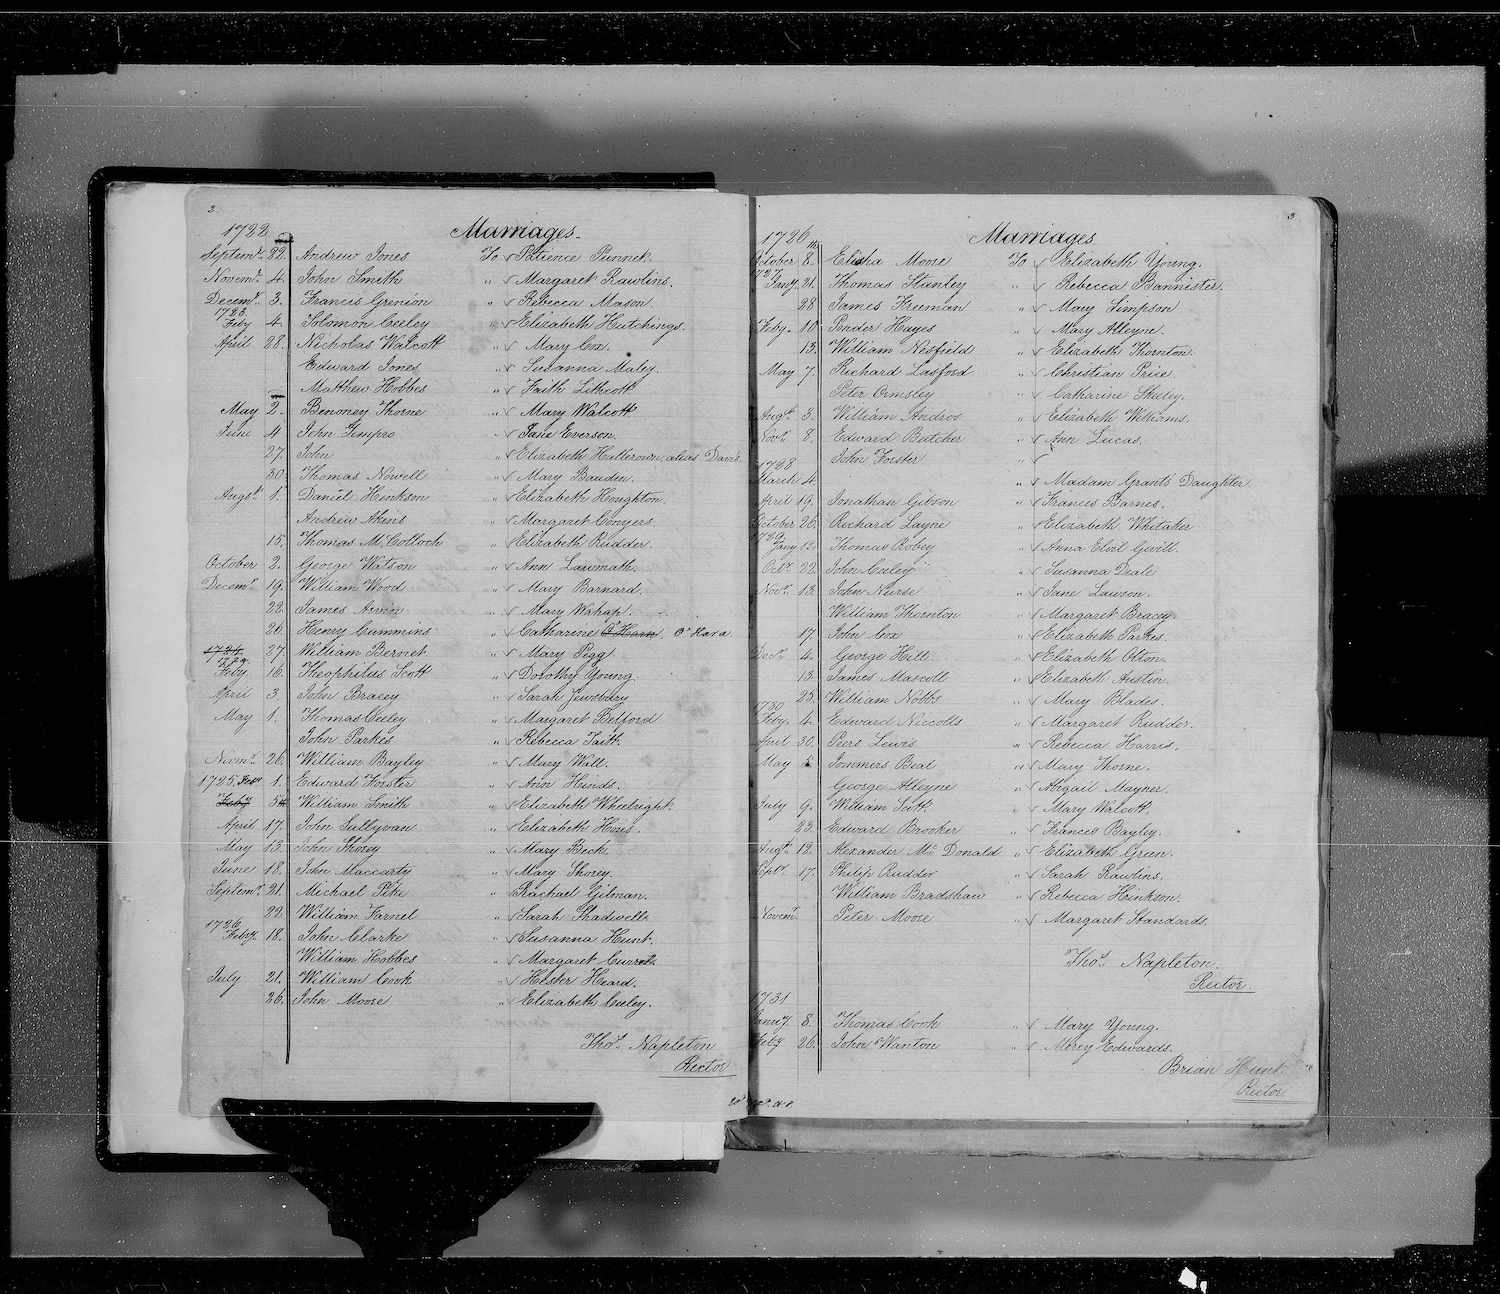 2
Marriages.
1722
Septemr. 22. Andrew Jones To Patience Punnett.
Novemr. 4. John Smith " Margaret Rawlins.
Decemr. 3. Francis Grenion " Rebecca Mason.
1723
Feby 4. Solomon Ceeley " Elizabeth Hutchings.
April 28. Nicholas Walcott " Mary Cox.
Edward Jones " Susanna Maley.
Matthew Hobbes " Faith Lithcott
May 2. Benoney Thorne " Mary Walcott
June 4 John Jimpro " Jane Everson.
27. John " Elizabeth Hallerown alias Davis.
30. Thomas Nowell " Mary Bauden.
Augst. 1. Daniel Hinkson " Elizabeth Houghton.
Andrew Akins " Margaret Conyers.
15. Thomas McColloch " Elizabeth Rudder.
October 2. George Watson " Ann Lawmath.
Decemr. 19. William Wood " Mary Barnard.
22. James Armor " Mary Wahap.
26. Henry Cummins " Catharine O'Harn. O'Hara
1724
27. William Bervict " Mary Pegg.
Feby 16. Theophilus Scott " Dorothy Young.
April 3 John Bracey " Sarah Jewsbary
May 1. Thomas Ceeley " Margaret Belford
John Parkes " Rebecca Taitt.
Novemr. 26. William Bayley " Mary Will.
1725 1. Edward Forster " Ann Hinds.
Feby 5 William Smith " Elizabeth Wheelright
April 17. John Sullyvan " Elizabeth Hows.
May 13. John Shorey " Mary Beck
June 18. John Maccarty " Mary Shorey.
Septemr. 21. Michael Pike " Rachael Gilman.
22. William Farnel " Sarah Shadwell
1726
Feby. 18. John Clarke " Susanna Hunt.
William Hobbes " Margaret Currett.
July 21. William Cook " Hester Heard.
26. John Moore " Elizabeth Ceeley.
Thos. Napleton
Rector
3
Marriages
1726
October 8. Elisha Moore To Elizabeth Young.
1727
Jany. 21. Thomas Stanley " Rebecca Bannister.
28 James Freeman " May Simpson
Feby. 10 Ponder Hayes " Mary Alleyne.
13. William Nesfield " Elizabeth Thornton.
May 7. Richard Lasford " Christian Price.
Peter Ormsley " Catharine Skeley.
Augt. 3. William Andros " Elizabeth Williams.
Novr. 8. Edward Butcher " Ann Lucas.
John Forster "
1728
March 4. " Madam Grants Daughter.
April 19. Jonathan Gibson " Frances Barnes.
October 26. Richard Layne " Elizabeth Whitaker
1729
Jany 12. Thomas Robey " Anna Elvil Gevill.
Octr. 22. John Ceeley " Susanna Deale
Novr. 13. John Nurse " Jane Lawson.
William Thornton " Margaret Bracey
17. John Cox " Elizabeth Parkes.
Decr. 4. George Hill " Elizabeth Olton
13. James Mascoll " Elizabeth Austin
25. William Nobbs " Mary Blades.
1730
Feby. 4. Edward Niccolls " Margaret Rudder.
April 30. Peers Lewis " Rebecca Harris.
May Sommers Beal " Mary Thorne.
George Alleyne " Abigail Mayner.
July 9. William Scott " Mary Walcott.
23. Edward Brooker " Frances Bayley.
Augt. 12. Alexander McDonald " Elizabeth Green.
Septr. 17. Philip Rudder " Sarah Rawlins.
William Bradshaw " Rebecca Hinkson.
Novemr. Peter Moore " Margaret Standards.
Thos. Napleton.
Rector.
1731
Janry. 8. Thomas Cook " Mary Young.
Feby 26. John Wanton " Mercy Edwards.
Brian Hunt
Rector